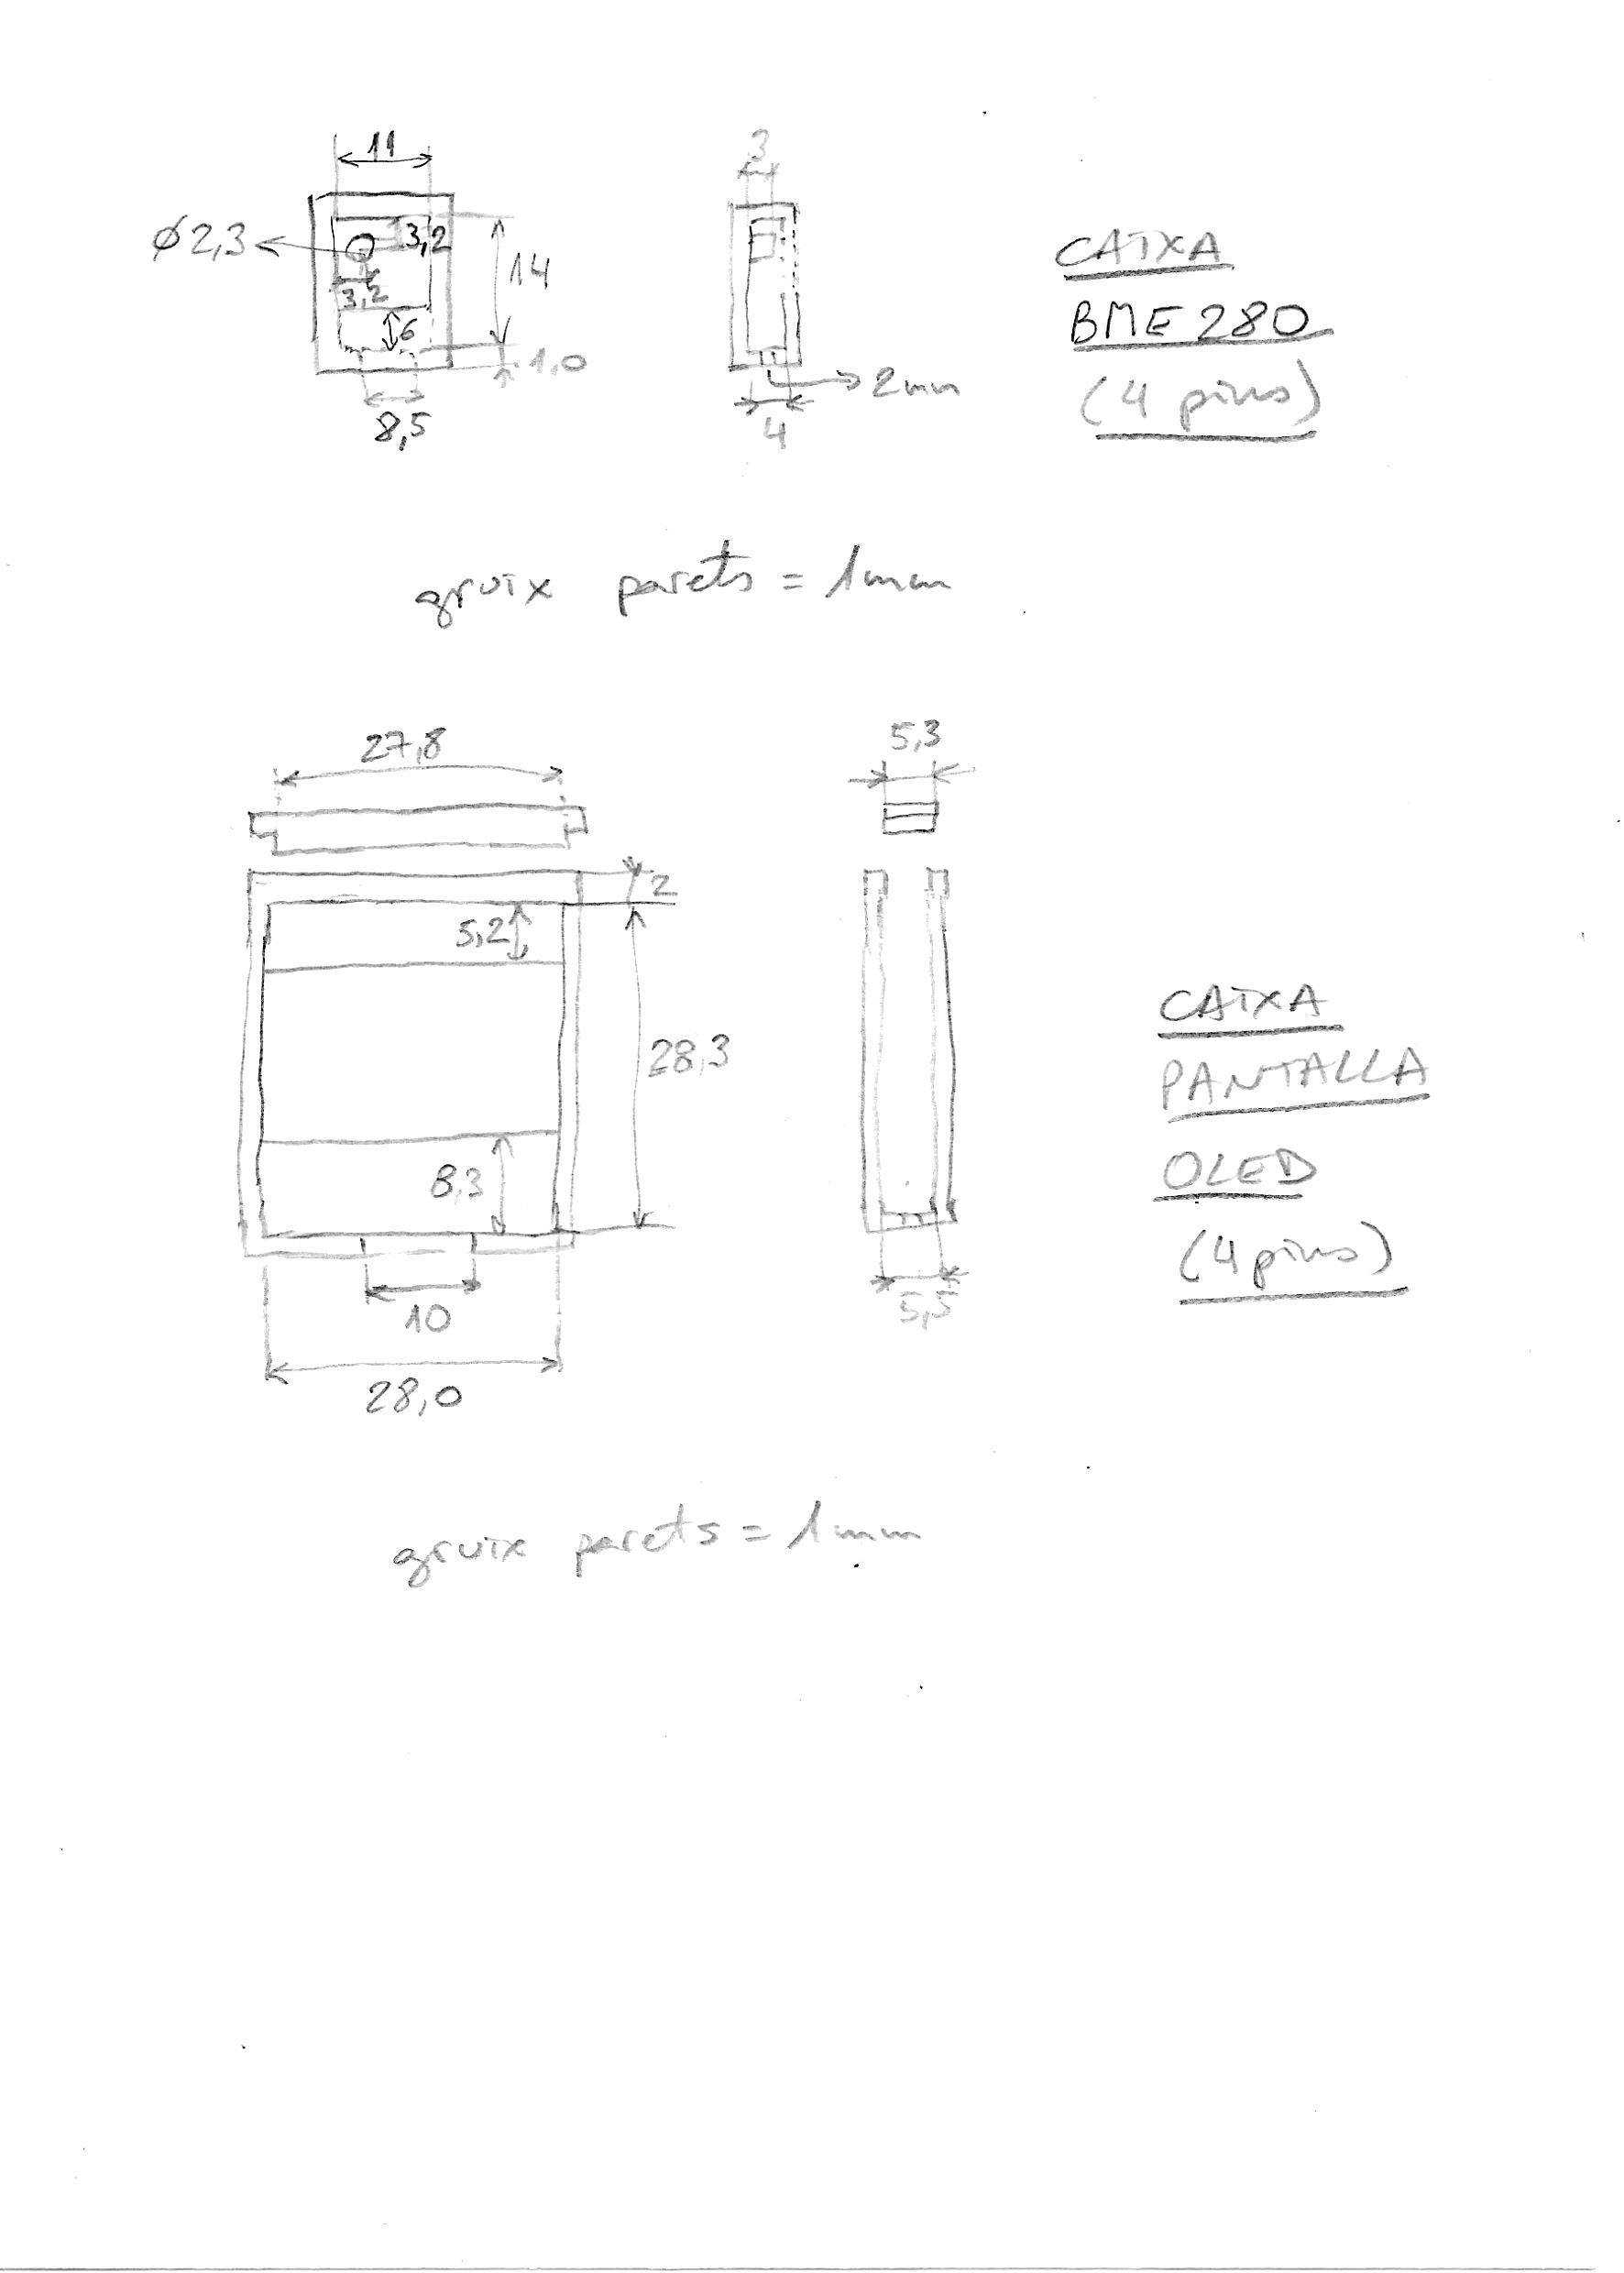 11
3
Ø2,3
3,2
14
3,2
6
1,0
8,5
2mm
4
CAIXA
BME280
(4 pins)
gruix parets = 1mm
27,8
5,3
2
5,2
28,3
8,3
10
28,0
5,5
CAIXA
PANTALLA
OLED
(4 pins)
gruix parets = 1mm